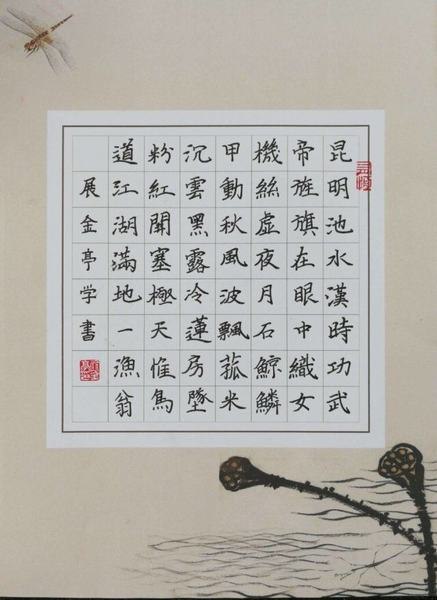 昆明池水漢時功武
帝旌旗在眼中織女
機絲虛夜月石鯨鱗
甲動秋風波飄菰米
沉雲黑露冷蓮房墜
粉紅開塞極天惟鳥
道江湖滿地一漁翁
展金亭学書